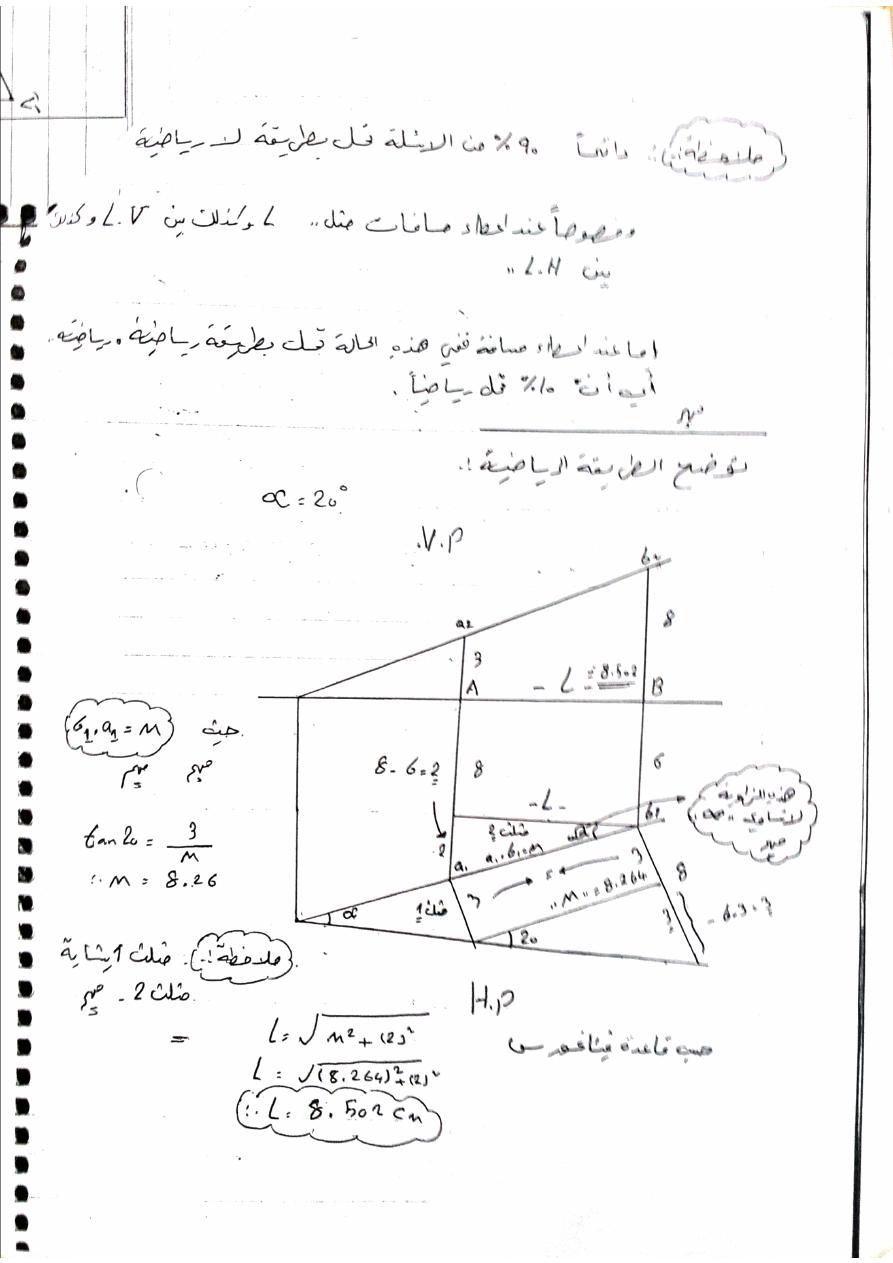 ملاحظة:. دائماً ٩٠٪ من الاسئلة تحل بطريقة لا رياضية
وخصوصاً عند اعطاء مسافات مثل ,, L وكذلك بين L.V وكذلك
بين L.H ,,
اما عند اعطاء مسافة ففي هذه الحالة تحل بطريقة رياضية، رياضية..
أي أن ١٠٪ تحل رياضياً.
مهم
توضح الطريقة الرياضية:.
α = 20°
V.P.
b2
a2
8
3
- L = 8.502 -
A
B
حيث b1.a1 = M
مهم مهم
8-6=2
8
6
هذه الزاوية
لا تساوي ,,α,,
مهم
-L-
b1
مثلث 2
2
a1.b1=M
tan 20 = 3/M
∴ M = 8.26
a1
3
5
3
8
,,M,,=8.264
α
مثلث 1
3
20
ملاحظة:. مثلث 1 يشابه
مثلث 2 - مهم
H.P
حسب قاعدة فيثاغورس
= L = √M² + (2)²
L = √(8.264)² + (2)²
∴ L = 8.502 cm